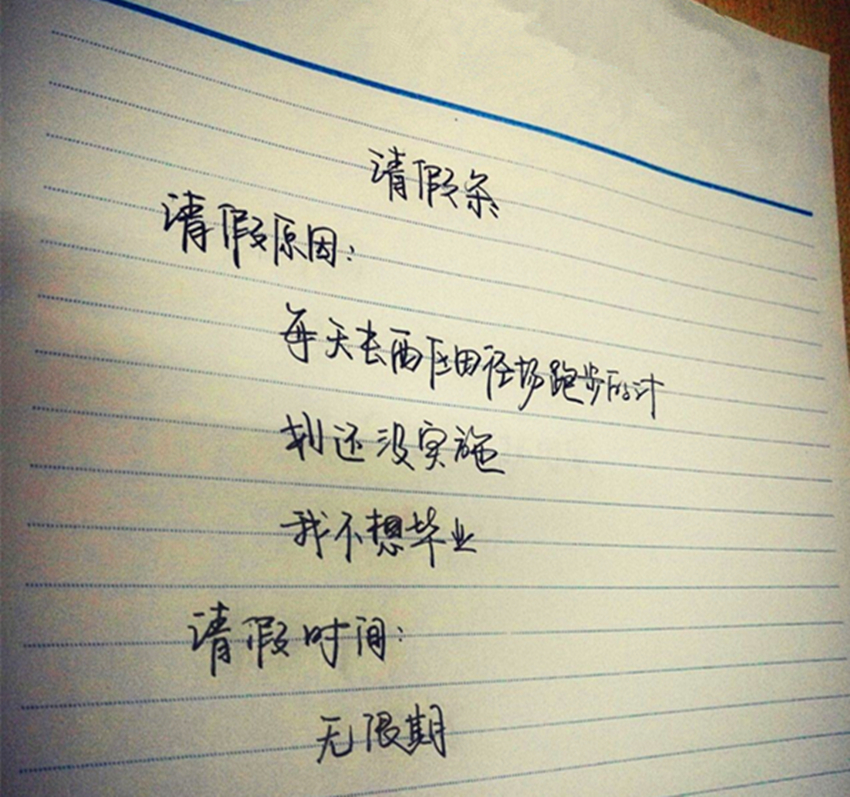 请假条
请假原因：
每天去西区田径场跑步的计
划还没实施
我不想毕业
请假时间：
无限期